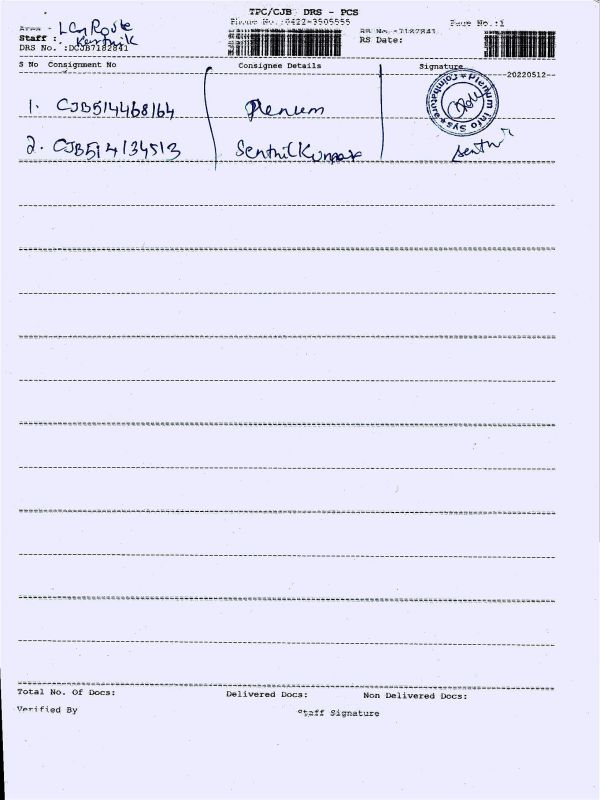 TPC/CJB DRS - PCS
Phone No.:0422-3505555
Page No.:1
Area - LCn Route
Staff : Karthik
RS No.:7187841
DRS No. :DCJB7182841
RS Date:
S No Consignment No Consignee Details Signature
20220512
1. CJB514468164 Plenum
Plenum Info Sys Coimbatore
2. CJB514134513 Senthil Kumar Senthil
Total No. Of Docs: Delivered Docs: Non Delivered Docs:
Verified By Staff Signature